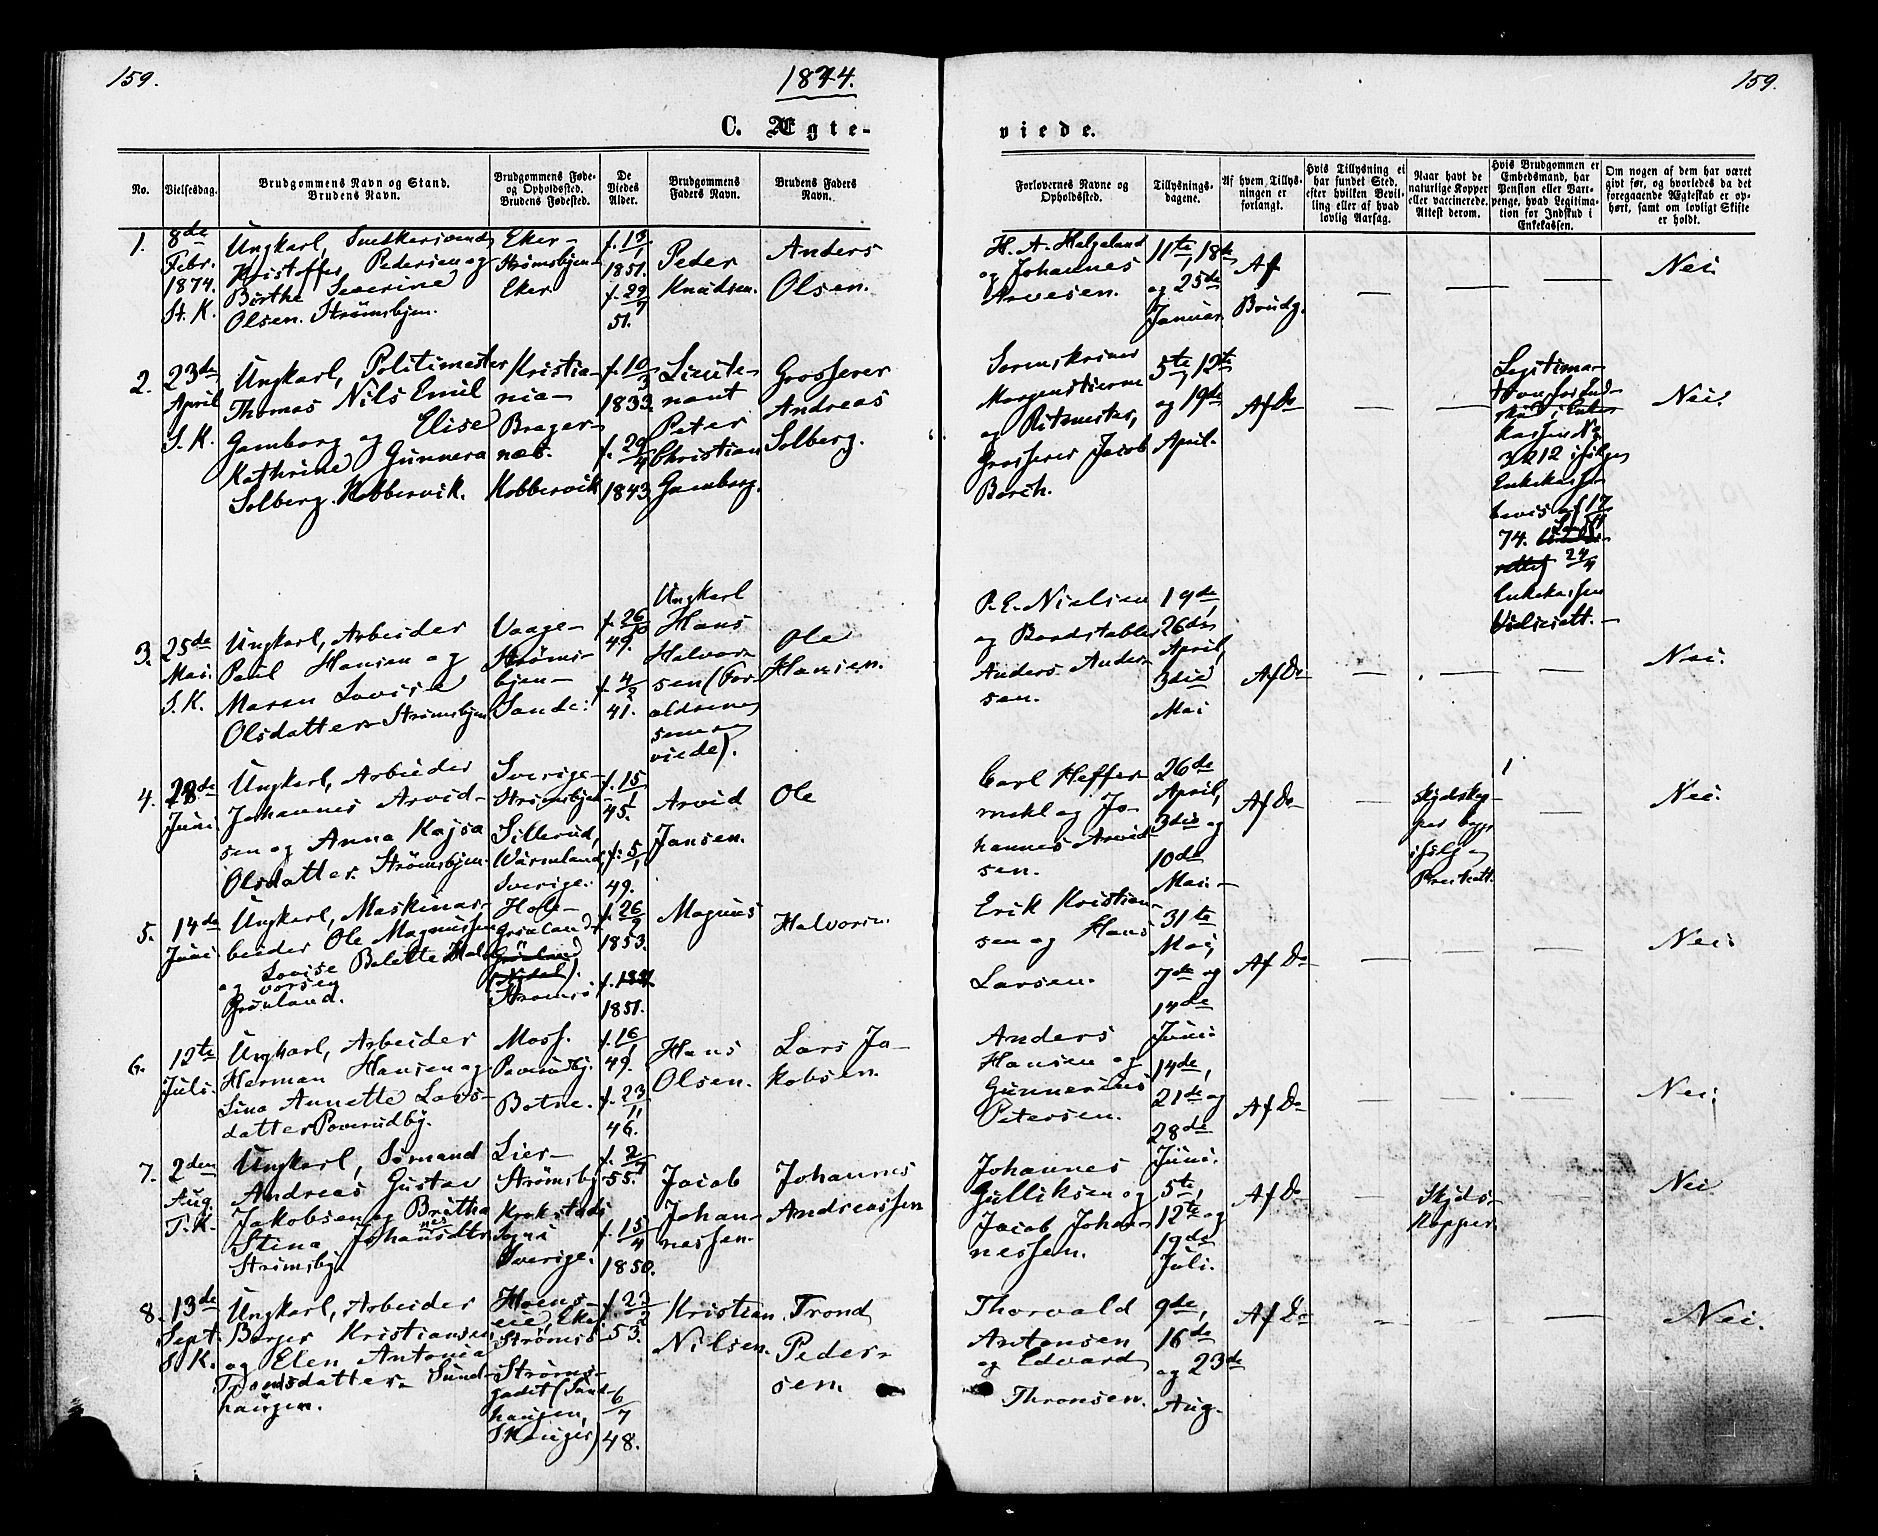 159.
1874.
159.
C. Ægte-
viede.
No.
Vielsesdag.
Brudgommens Navn og Stand.
Brudens Navn.
Brudgommens Føde-
og Opholdssted.
Brudens Fødested.
De
Viedes
Alder.
Brudgommens
Faders Navn.
Brudens Faders
Navn.
Forlovernes Navne og
Opholdssted.
Tillysnings-
dagene.
Af hvem Tillys-
ningen er
forlangt.
Hvis Tillysning ei
har fundet Sted,
efter hvilken Bevil-
ling eller af hvad
lovlig Aarsag.
Naar havt de
naturlige Kopper
eller vaccinerede.
Attest derom.
Hvis Brudgommen er
Embedsmand, har
Pension eller Vart-
penge, hvad Legitima-
tion for Indskud i
Enkekassen.
Om nogen af dem har været
gift før, og hvorledes da det
foregaaende Ægteskab er op-
hørt, samt om lovligt Skifte
er holdt.
1.
8de
Febr.
1874.
St. K.
Ungkarl, Snedkersvend
Kristoffer Pedersen og
Birthe Severine
Olsen. Strømsbjen.
Eker-
Strømsbjen-
Eker
f. 15/1
1851.
f. 29/7
51.
Peder
Knudsen.
Anders
Olsen.
H. A. Helgeland
og Johannes
Arvesen.
11te, 18de
og 25de
Januar
Af
Brudg.
— — — Nei.
2.
23de
April
S. K.
Ungkarl, Politimester
Thomas Nils Emil
Gamborg og Elise
Kathrine Gunnera
Solberg. Kobbervik.
Kristia-
nia-
Brager-
næs.
Kobbervik
f. 10/3
1833.
f. 29/4
1843.
Lieute-
nant
Peter
Christian
Gamborg.
Grosserer
Andreas
Solberg.
Sorenskriver
Morgenstierne
og Ritmester,
Grosserer Jacob
Borch.
5te, 12te
og 19de
April.
Af Do
— —
Legitima-
tion for Ind-
skud i Enke-
kassen No
3212 ifølge
Enkekasse
bevis af 17/4
74.
24/4
Enkekassen
Nei.
3.
25de
Mai.
S. K.
Ungkarl, Arbeider
Paul Hansen og
Maren Lovise
Olsdatter. Strømsbjen
Vaage-
Strøms-
bjen-
Sande.
f. 26/10
49.
f. 4/2
41.
Ungkarl
Hans
Halvor-
sen (For-
ældrene
senere
viede).
Ole
Hansen.
P. E. Nielsen
og Baadstabler
Anders Ander-
sen.
19de,
26de
April,
3die
Mai
Af Do
— — — Nei.
4.
28de
Juni
Ungkarl, Arbeider
Johannes Arvid-
sen og Anna Kajsa
Olsdatter. Strømsbjen.
Sverige-
Strømsbjen
Sillerud,
Wärmland,
Sverige.
f. 15/1
45.
f. 5/1
49.
Arvid
Jansen.
Ole
Carl Heffer-
mehl og Jo-
hannes Arvid-
sen.
26de
April,
3die og
10de
Mai.
Af Do
—
Skjdskop-
per
ifølge
—
Nei.
5.
14de
Juni
Ungkarl, Maskinar-
beider Ole Magnussen
og Lovise Bolette Hal-
vorsen
Grønland.
Hole-
Grønland
Strømsø
f. 26/9
1853.
1851.
Magnus
Halvorsen.
Erik Kristian-
sen og Hans
Larsen.
31te
Mai,
7de og
14de
Juni.
Af Do
— — — Nei.
6.
12te
Juli.
Ungkarl, Arbeider
Herman Hansen og
Lina Annette Lars-
datter Poverudbg.
Moss.
Poverudbg.
Botne.
f. 16/1
49.
f. 23/11
46.
Hans
Olsen.
Lars Ja-
kobsen.
Anders
Hansen og
Gunnerius
Petersen.
14de,
21de og
28de
Juni.
Af Do
— — — Nei.
7.
2den
Aug.
T. K.
Ungkarl, Sømand
Andreas Gustav
Jakobsen og Britha
Stina Johannesdtr
Strømsbg.
Lier-
Strømsbg
Krokstads
Sogn i
Sverige.
f. 2/7
55.
f. 15/4
1850.
Jacob
Johan-
nessen.
Johannes
Andreassen
Johannes
Gulliksen og
Jacob Johan-
nessen.
5te,
12te og
19de
Juli.
Af Do
—
Skjds-
Kopper.
—
Nei
8.
13de
Sept.
S. K.
Ungkarl, Arbeider
Borger Kristiansen
og Elen Antonia
Trondsdatter. Sund-
haugen.
Hoens-
eie, Eker
Strømsø-
Strøms-
godset (Sund-
haugen,
Skauger)
f. 22/2
53.
6/7
48.
Kristian
Nilsen.
Trond
Peder-
sen.
Thorvald
Antonsen
og Edvard
Thronsen.
9de,
16de
og 23de
Aug.
Af Do
— — — Nei.